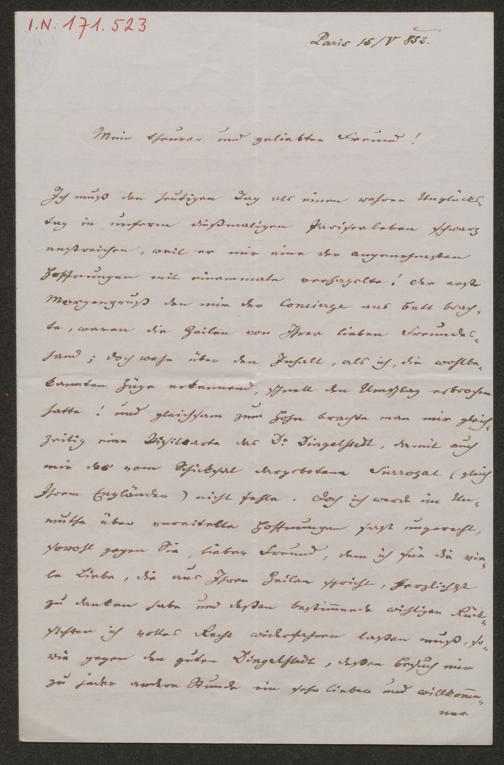 I.N. 171.523
Paris 16/V 853.
Mein theurer und geliebter Freund!
Ich muß den heutigen Tag als einen wahren Unglücks-
tag in unserem dießmaligen Pariserleben schwarz
anstreichen, weil er mir eine der angenehmsten
Hoffnungen mit einemmale verhagelte! Der erste
Morgengruß den mir der Concierge ans Bett brach-
te, waren die Zeilen von Ihrer lieben Freundes-
hand; doch wehe über den Inhalt, als ich, die wohlbe-
kannten Züge erkennend, schnell den Umschlag erbrochen
hatte! und gleichsam zum Hohn brachte man mir gleich-
zeitig eine Visitkarte des Dr. Dingelstedt, damit auch
mir das vom Schicksal dargebotene Surrogat (gleich
Ihrem Engländer) nicht fehle. Doch ich werde im Un-
muthe über vereitelte Hoffnungen fast ungerecht,
sowohl gegen Sie, lieber Freund, dem ich für die vie-
le Liebe, die aus Ihren Zeilen spricht, herzlichst
zu danken habe und dessen bestimmende wichtigen Rück-
sichten ich volles Recht widerfahren lassen muß, so-
wie gegen den guten Dingelstedt, dessen Besuch mir
zu jeder andern Stunde ein sehr lieber und willkomme-
ner